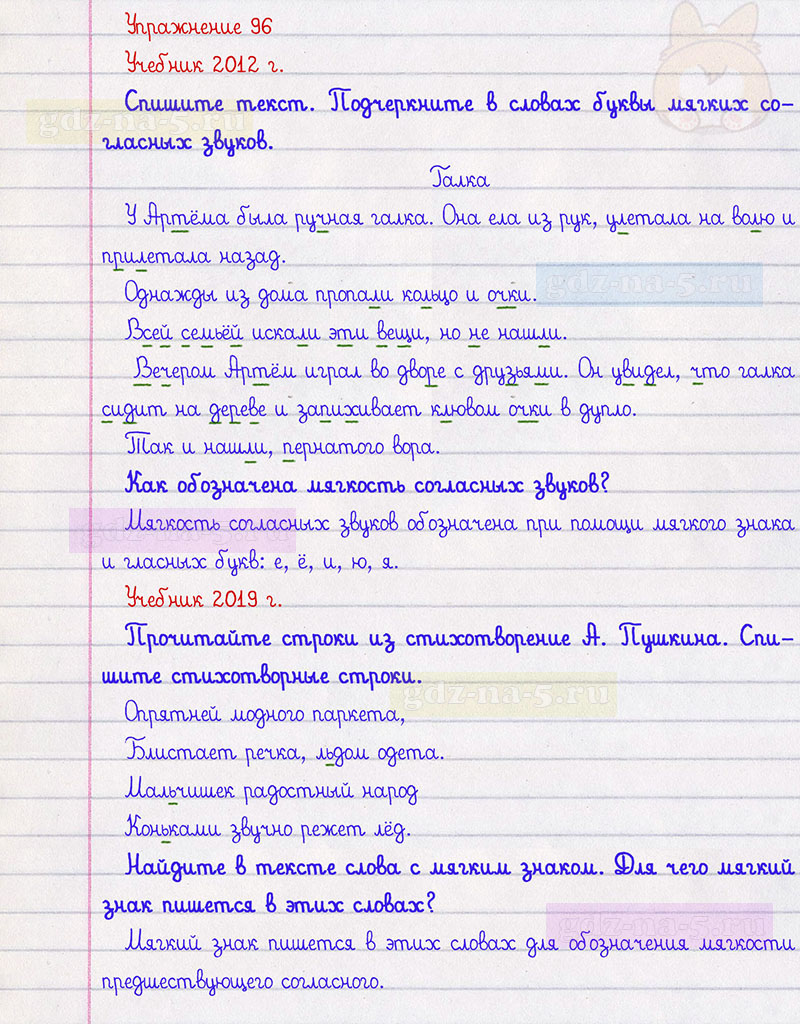 Упражнение 96
Учебник 2012 г.
Спишите текст. Подчеркните в словах буквы мягких со-
gdz-na-5.ru
гласных звуков.
Галка
У Артёма была ручная галка. Она ела из рук, улетала на волю и
прилетала назад.
gdz-na-5.ru
Однажды из дома пропали кольцо и очки.
Всей семьёй искали эти вещи, но не нашли.
Вечером Артём играл во дворе с друзьями. Он увидел, что галка
сидит на дереве и запихивает клювом очки в дупло.
Так и нашли, пернатого вора.
Как обозначена мягкость согласных звуков?
Мягкость согласных звуков обозначена при помощи мягкого знака
gdz-na-5.ru
и гласных букв: е, ё, и, ю, я.
Учебник 2019 г.
Прочитайте строки из стихотворение А. Пушкина. Спи-
шите стихотворные строки.
gdz-na-5.ru
Опрятней модного паркета,
Блистает речка, льдом одета.
Мальчишек радостный народ
Коньками звучно режет лёд.
Найдите в тексте слова с мягким знаком. Для чего мягкий
знак пишется в этих словах?
gdz-na-5.ru
Мягкий знак пишется в этих словах для обозначения мягкости
предшествующего согласного.